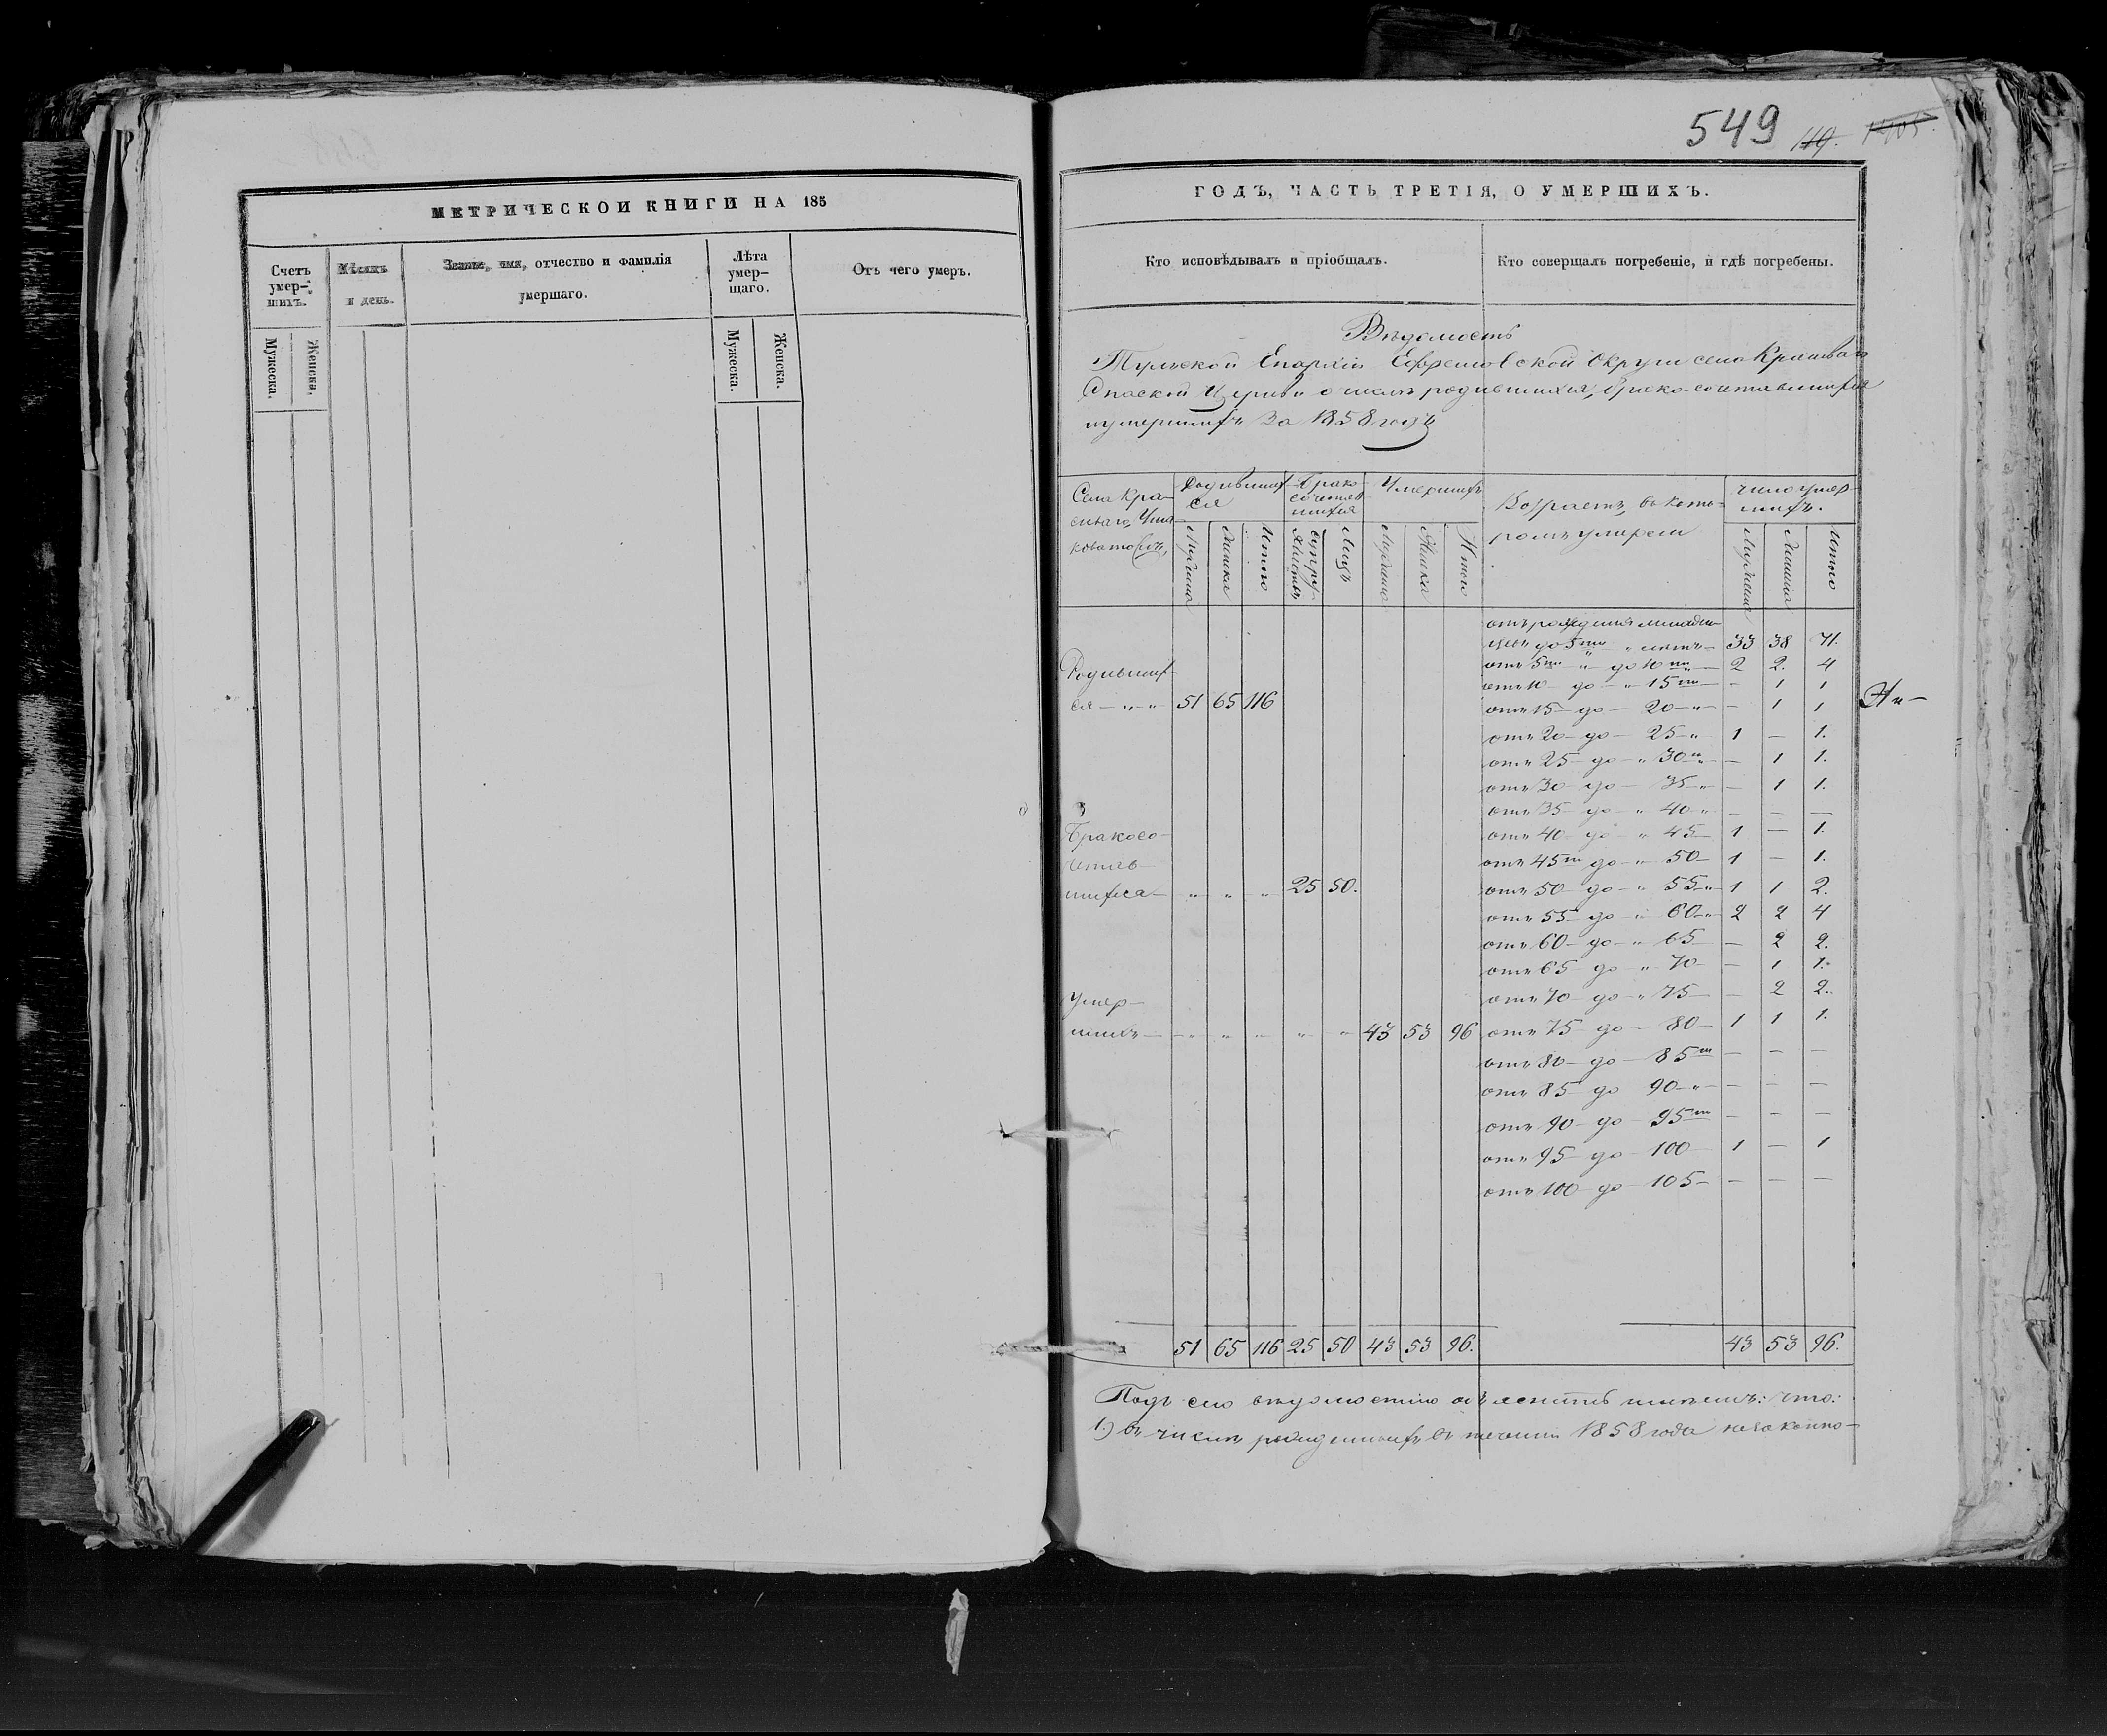 МЕТРИЧЕСКОЙ КНИГИ НА 185
Счетъ умер-шихъ.
Мѣсяцъ и день.
Званіе, имя, отчество и фамилія умершаго.
Лѣта умер-шаго.
Отъ чего умеръ.
Мужеска. Женска.
Мужеска. Женска.
549 119. 1705.
ГОДЪ, ЧАСТЬ ТРЕТІЯ, О УМЕРШИХЪ.
Кто исповѣдывалъ и пріобщалъ.
Кто совершалъ погребеніе, и гдѣ погребены.
Вѣдомость
Тульской Епархіи Ефремовской Округи села Красиваго
Спаской Церкви о числѣ родившихся, бракосочетавшихся
и умершихъ За 1858 годъ
Села Кра-
сиваго,
Родивших
ся
Брако
сочетав
шихся
Умершихъ
Возрастъ, въ кото-
ромъ умерли
число умер-
шихъ.
Итого
Лицъ
Итого
Итого
отъ рожденія младен-
цевъ до 5ти лѣтъ 33 38 71.
отъ 5ти до 10ти 2 2. 4
отъ 10 до 15ти - 1 1
отъ 15 до 20 - 1 1
отъ 20 до 25 1 - 1.
отъ 25 до 30 - 1 1.
отъ 30 до 35 - 1 1.
отъ 35 до 40 - - -
отъ 40 до 45 1 - 1.
отъ 45ти до 50 1 - 1.
отъ 50 до 55 1 1 2.
отъ 55 до 60 2 2 4
отъ 60 до 65 - 2 2.
отъ 65 до 70 - 1 1.
отъ 70 до 75 - 2 2.
отъ 75 до 80 1 1 1.
отъ 80 до 85ти - - -
отъ 85 до 90 - - -
отъ 90 до 95ти - - -
отъ 95 до 100 1 - 1
отъ 100 до 105 - - -
Родивших
ся 51 65 116
Бракосо
четав
шихся 25 50.
Умер-
шихъ 43 53 96
51 65 116 25 50 43 53 96. 43 53 96.
Подъ сею вѣдомостію объяснить имѣемъ: что:
1.) въ числѣ рожденныхъ въ теченіи 1858 года незаконно-